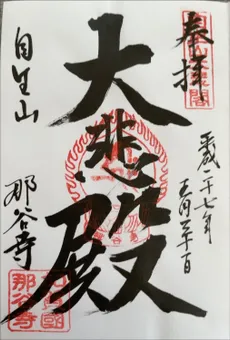 奉拝
平成二十七年
五月三十日
大悲殿
自生山
那谷寺
那谷寺